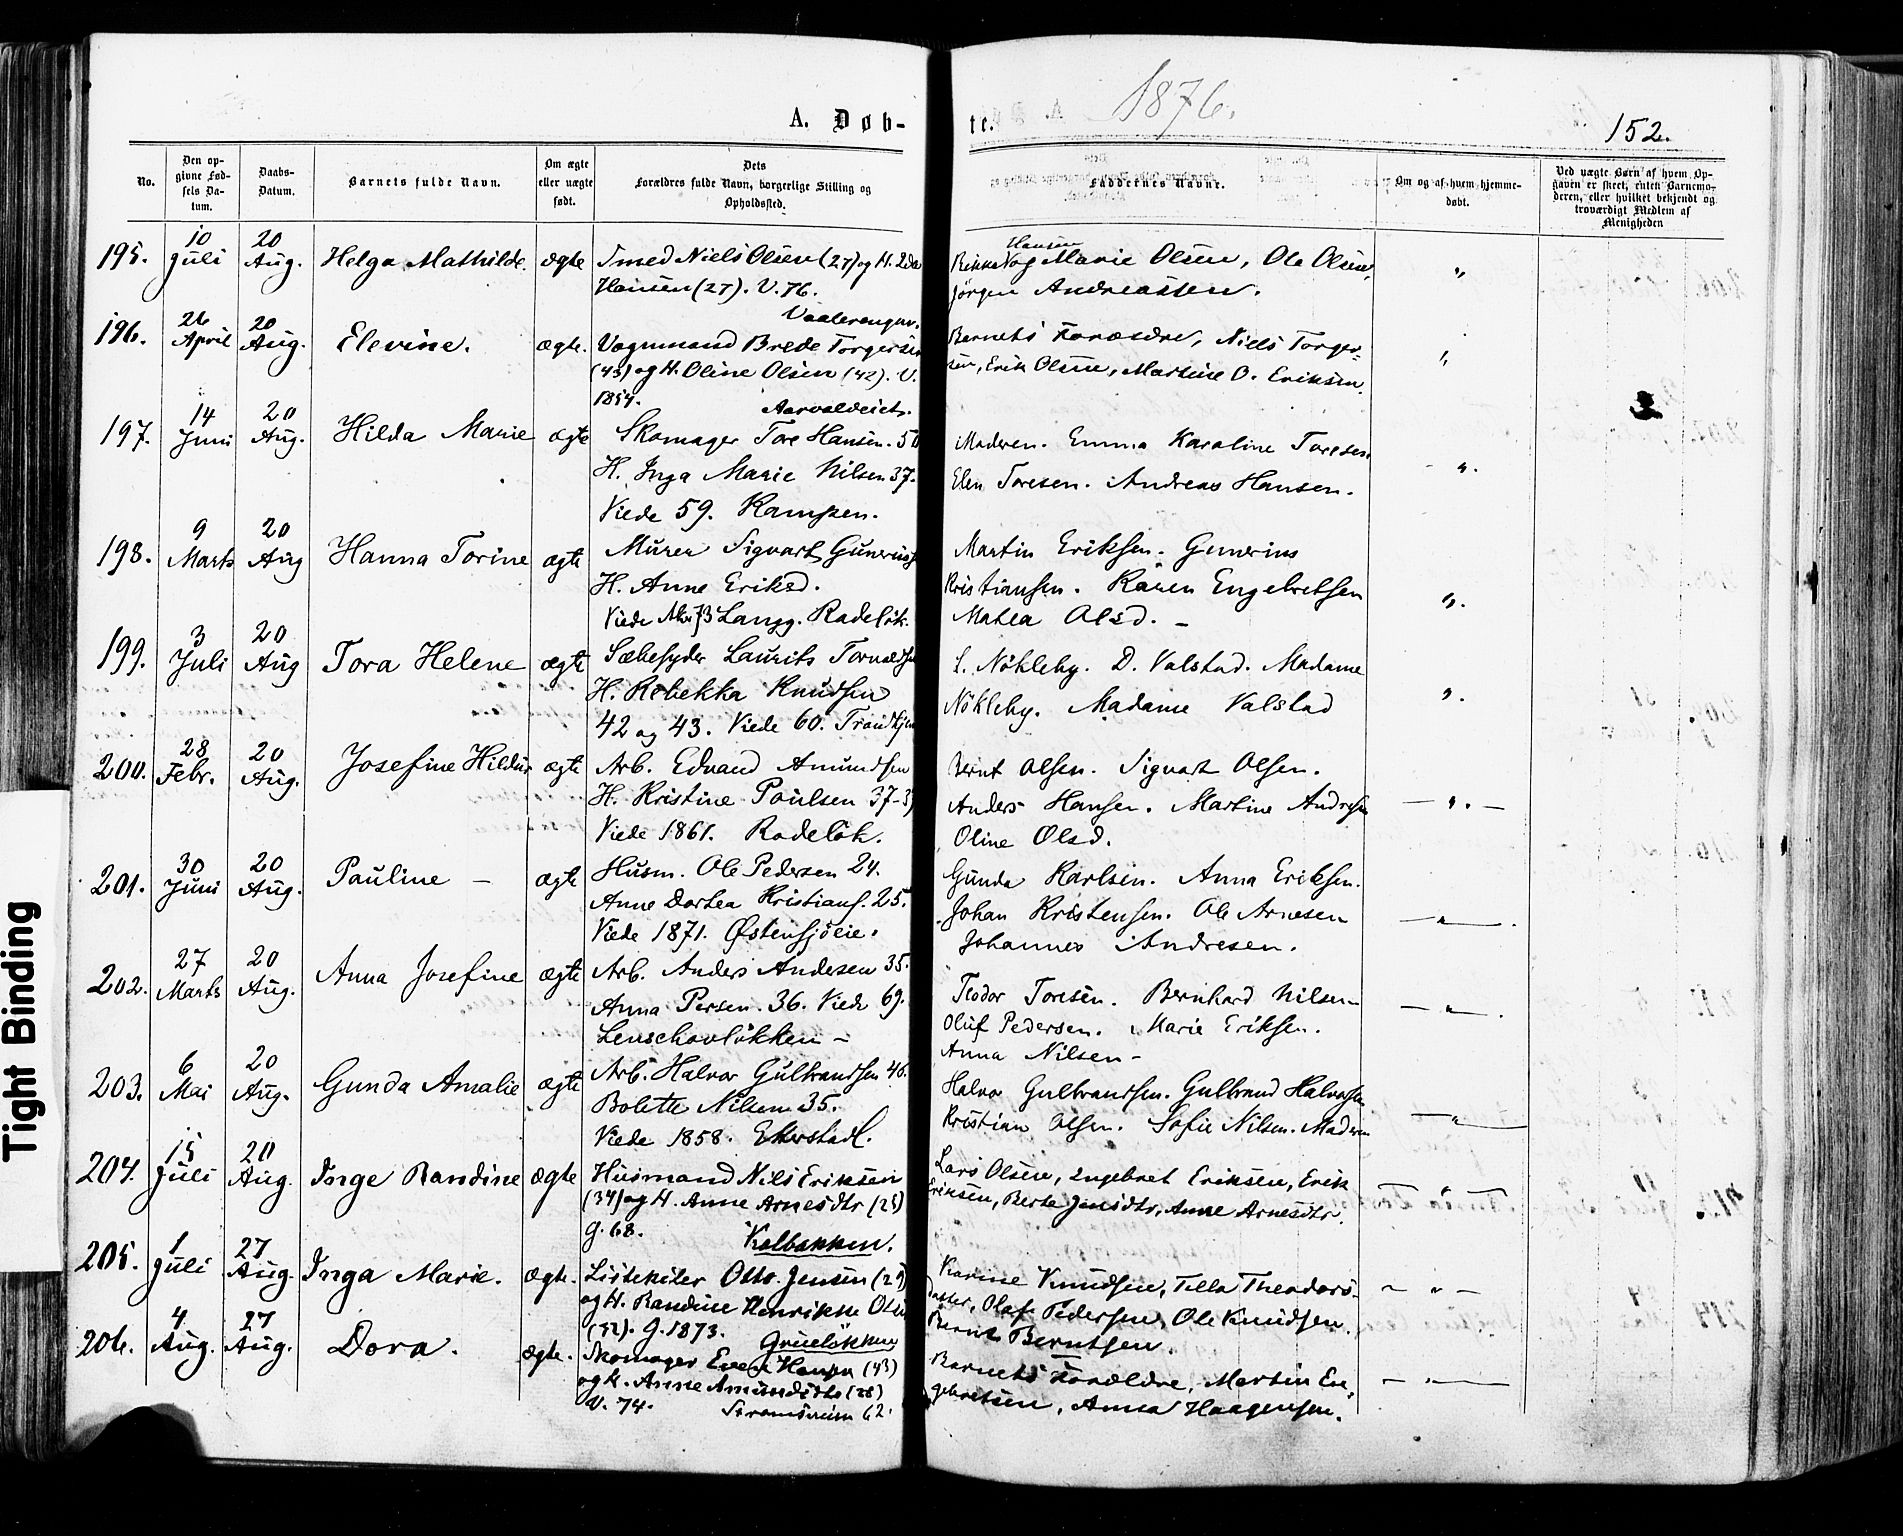 1876.
A. Døb-
te.
152.
No.
Den op-
givne Fød-
sels Da-
tum.
Daabs-
Datum.
Barnets fulde Navn.
Om ægte
eller uægte
født.
Dets
Forældres fulde Navn, borgerlige Stilling og
Opholdssted.
Faddernes Navne.
Om og af hvem hjemme-
døbt.
Ved uægte Børn af hvem Op-
gaven er skeet, enten Barnemo-
deren, eller hvilket bekjendt og
troværdigt Medlem af
Menigheden
195. 10 Juli 20 Aug. Helga Mathilde. ægte Smed Niels Olsen (27) og H.
Hansen (27). V. 76.
Hansen
Marie Olsen, Ole Olsen,
Jörgen Andreassen. "
Vaalerengen.
196. 26 April 20 Aug. Elevine. ægte. Vognmand Brede Torgersen
(43) og H. Oline Olsen (42). V.
1854.
Barnets Forældre, Niels Torger-
sen, Erik Olsen, Martine O. Eriksen. "
197. 14 Juni 20 Aug. Hilda Marie ægte Skomager Tore Hansen. 50
H. Inga Marie Nilsen 37.
Viede 59. Kampen.
Moderen. Emma Karoline Toresen
Elen Toresen. Andreas Hansen. - " .
198. 9 Marts 20 Aug Hanna Torine ægte Murer Sigvart
H. Anne Eriksd.
Viede 73 Langg. Rodeløk.
Martin Eriksen. Gunerius
Kristiansen. Karen Engebretsen
Matea Olsd. - "
199. 3 Juli 20 Aug Tora Helene ægte Sæbesyder Laurits
H. Rebekka Knudsen
42 og 43. Viede 60. Trondhjem
L. Nökleby. D. Valstad. Madame
Nökleby. Madame Valstad "
200. 28 Febr. 20 Aug. Josefine Hildur ægte Arb. Edvard Amundsen
H. Kristine Paulsen 37-
Viede 1861. Rodeløk.
Bernt Olsen. Sigvart Olsen.
Anders Hansen. Martine Andresen
Oline Olsd. - " -
201. 30 Juni 20 Aug. Pauline - ægte Husm. Ole Pedersen 24.
Anne Dortea Kristians. 25.
Viede 1871. Østensjöeie.
Gunda Karlsen. Anna Eriksen.
Johan Kristensen. Ole Arnesen
Johannes Andresen. - " -
202. 27 Marts 20 Aug. Anna Josefine ægte Arb. Anders Andesen 35.
Anna Persen. 36. Viede 69.
Lenschovløkken -
Teodor Toresen. Bernhard Nilsen
Oluf Pedersen. Marie Eriksen.
Anna Nilsen - - " -
203. 6 Mai 20 Aug. Gunda Amalie ægte Arb. Halvor Gulbrandsen 46.
Bolette Nilsen 35.
Viede 1858. Ekerstadl.
Halvor Gulbrandsen. Gulbrand Halvorsen
Kristian Olsen. Sofie Nilsen. Moderen - " -
204. 15 Juli 20 Aug. Inge Randine ægte Husmand Nils Eriksen
(34) og H. Anne Arnesdtr (25)
g. 68. Kalbakken.
Lars Olsen, Engebret Eriksen, Erik
Eriksen, Berte Jensdtr, Anne Arnesdtr. - " -
205. 1 Juli 27 Aug. Inga Marie. ægte. Otto Jensen (29)
og H. Randine Henrikke Olsen
(32). g. 1873. Grueløkken
Karine Knudsen, Tella Theodors-
datter, Olaf Pedersen, Ole Knudsen.
Bernt Berntsen. - " -
206. 4 Aug. 27 Aug. Dora. ægte. Skomager Even Hansen (43)
og H. Anne Amundsdtr (28)
V. 74. 62.
Barnets Forældre, Martin En-
gebretsen, Anna Haagensen. - " -
Tight Binding